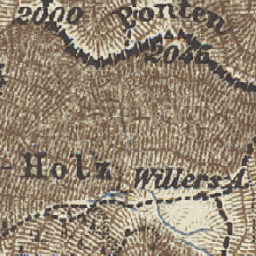 2000
Ponten
2046
-Holz
Willers-A.